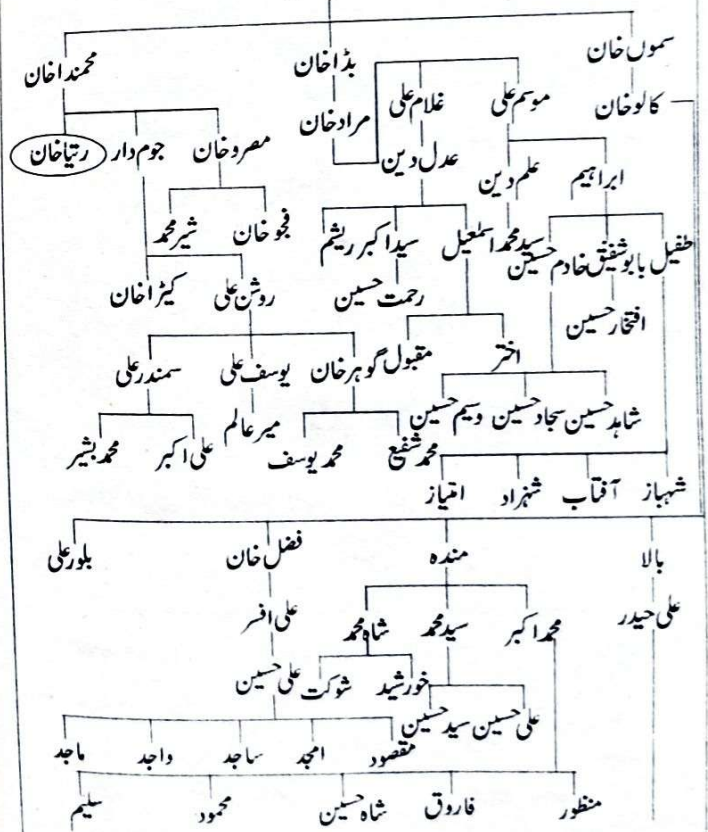 سموں خان بڈاخان محمنداخان
کالوخان موسم علی غلام علی مرادخان
مصروخان جوم دار رتیاخان
ابراہیم علم دین عدل دین
فجوخان شیرمحمد
طفیل بابوشفیق خادم حسین سیدمحمد اسمٰعیل سیداکبر ریشم
رحمت حسین روشن علی کیڑاخان
افتخارحسین
اختر مقبول گوہرخان یوسف علی سمندرعلی
شاہدحسین سجادحسین وسیم حسین
محمدشفیع محمدیوسف میرعالم علی اکبر محمدبشیر
شہباز آفتاب شہزاد امتیاز
بالا مندہ فضل خان بلورعلی
علی حیدر محمداکبر سیدمحمد شاہ محمد علی افسر
خورشید شوکت علی حسین
علی حسین سیدحسین
مقصود امجد ساجد واجد ماجد
منظور فاروق شاہ حسین محمود سلیم